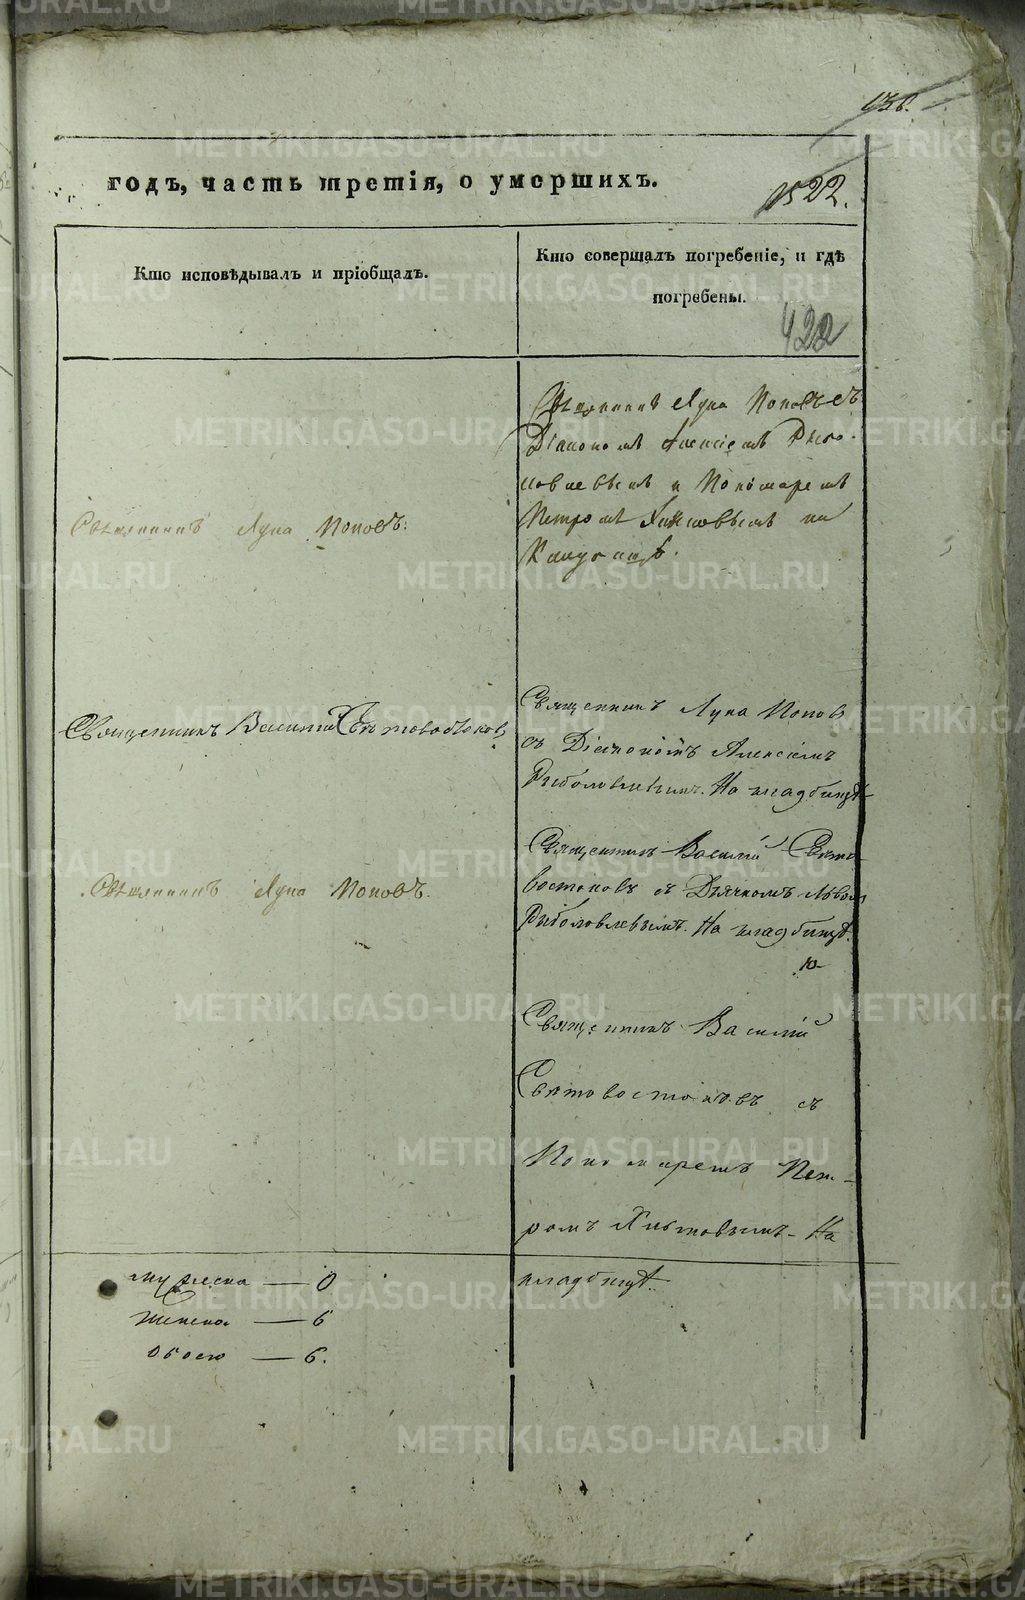 138.
годъ, часть третія, о умершихъ.
1522.
Кто исповѣдывалъ и пріобщалъ.
Кто совершалъ погребеніе, и гдѣ
погребены.
422
Священникъ Лука Поповъ съ
Діакономъ Алексіемъ Рыбо-
ловлевымъ и Пономаремъ
Петромъ на
Священникъ Лука Поповъ.
Священникъ Василій Святовостоковъ
Священникъ Лука Поповъ
съ Діакономъ Алексіемъ
Рыболовлевымъ. На кладбищѣ
Священникъ Лука Поповъ.
Священникъ Василій Свято-
востоковъ съ Дьячкомъ Львомъ
Рыболовлевымъ. На кладбищѣ.
Священникъ Василій
Святовостоковъ съ
Пономаремъ Пет-
ромъ На
кладбищѣ.
мужеска — 0
женска — 6
обоего — 6.
METRIKI.GASO-URAL.RU